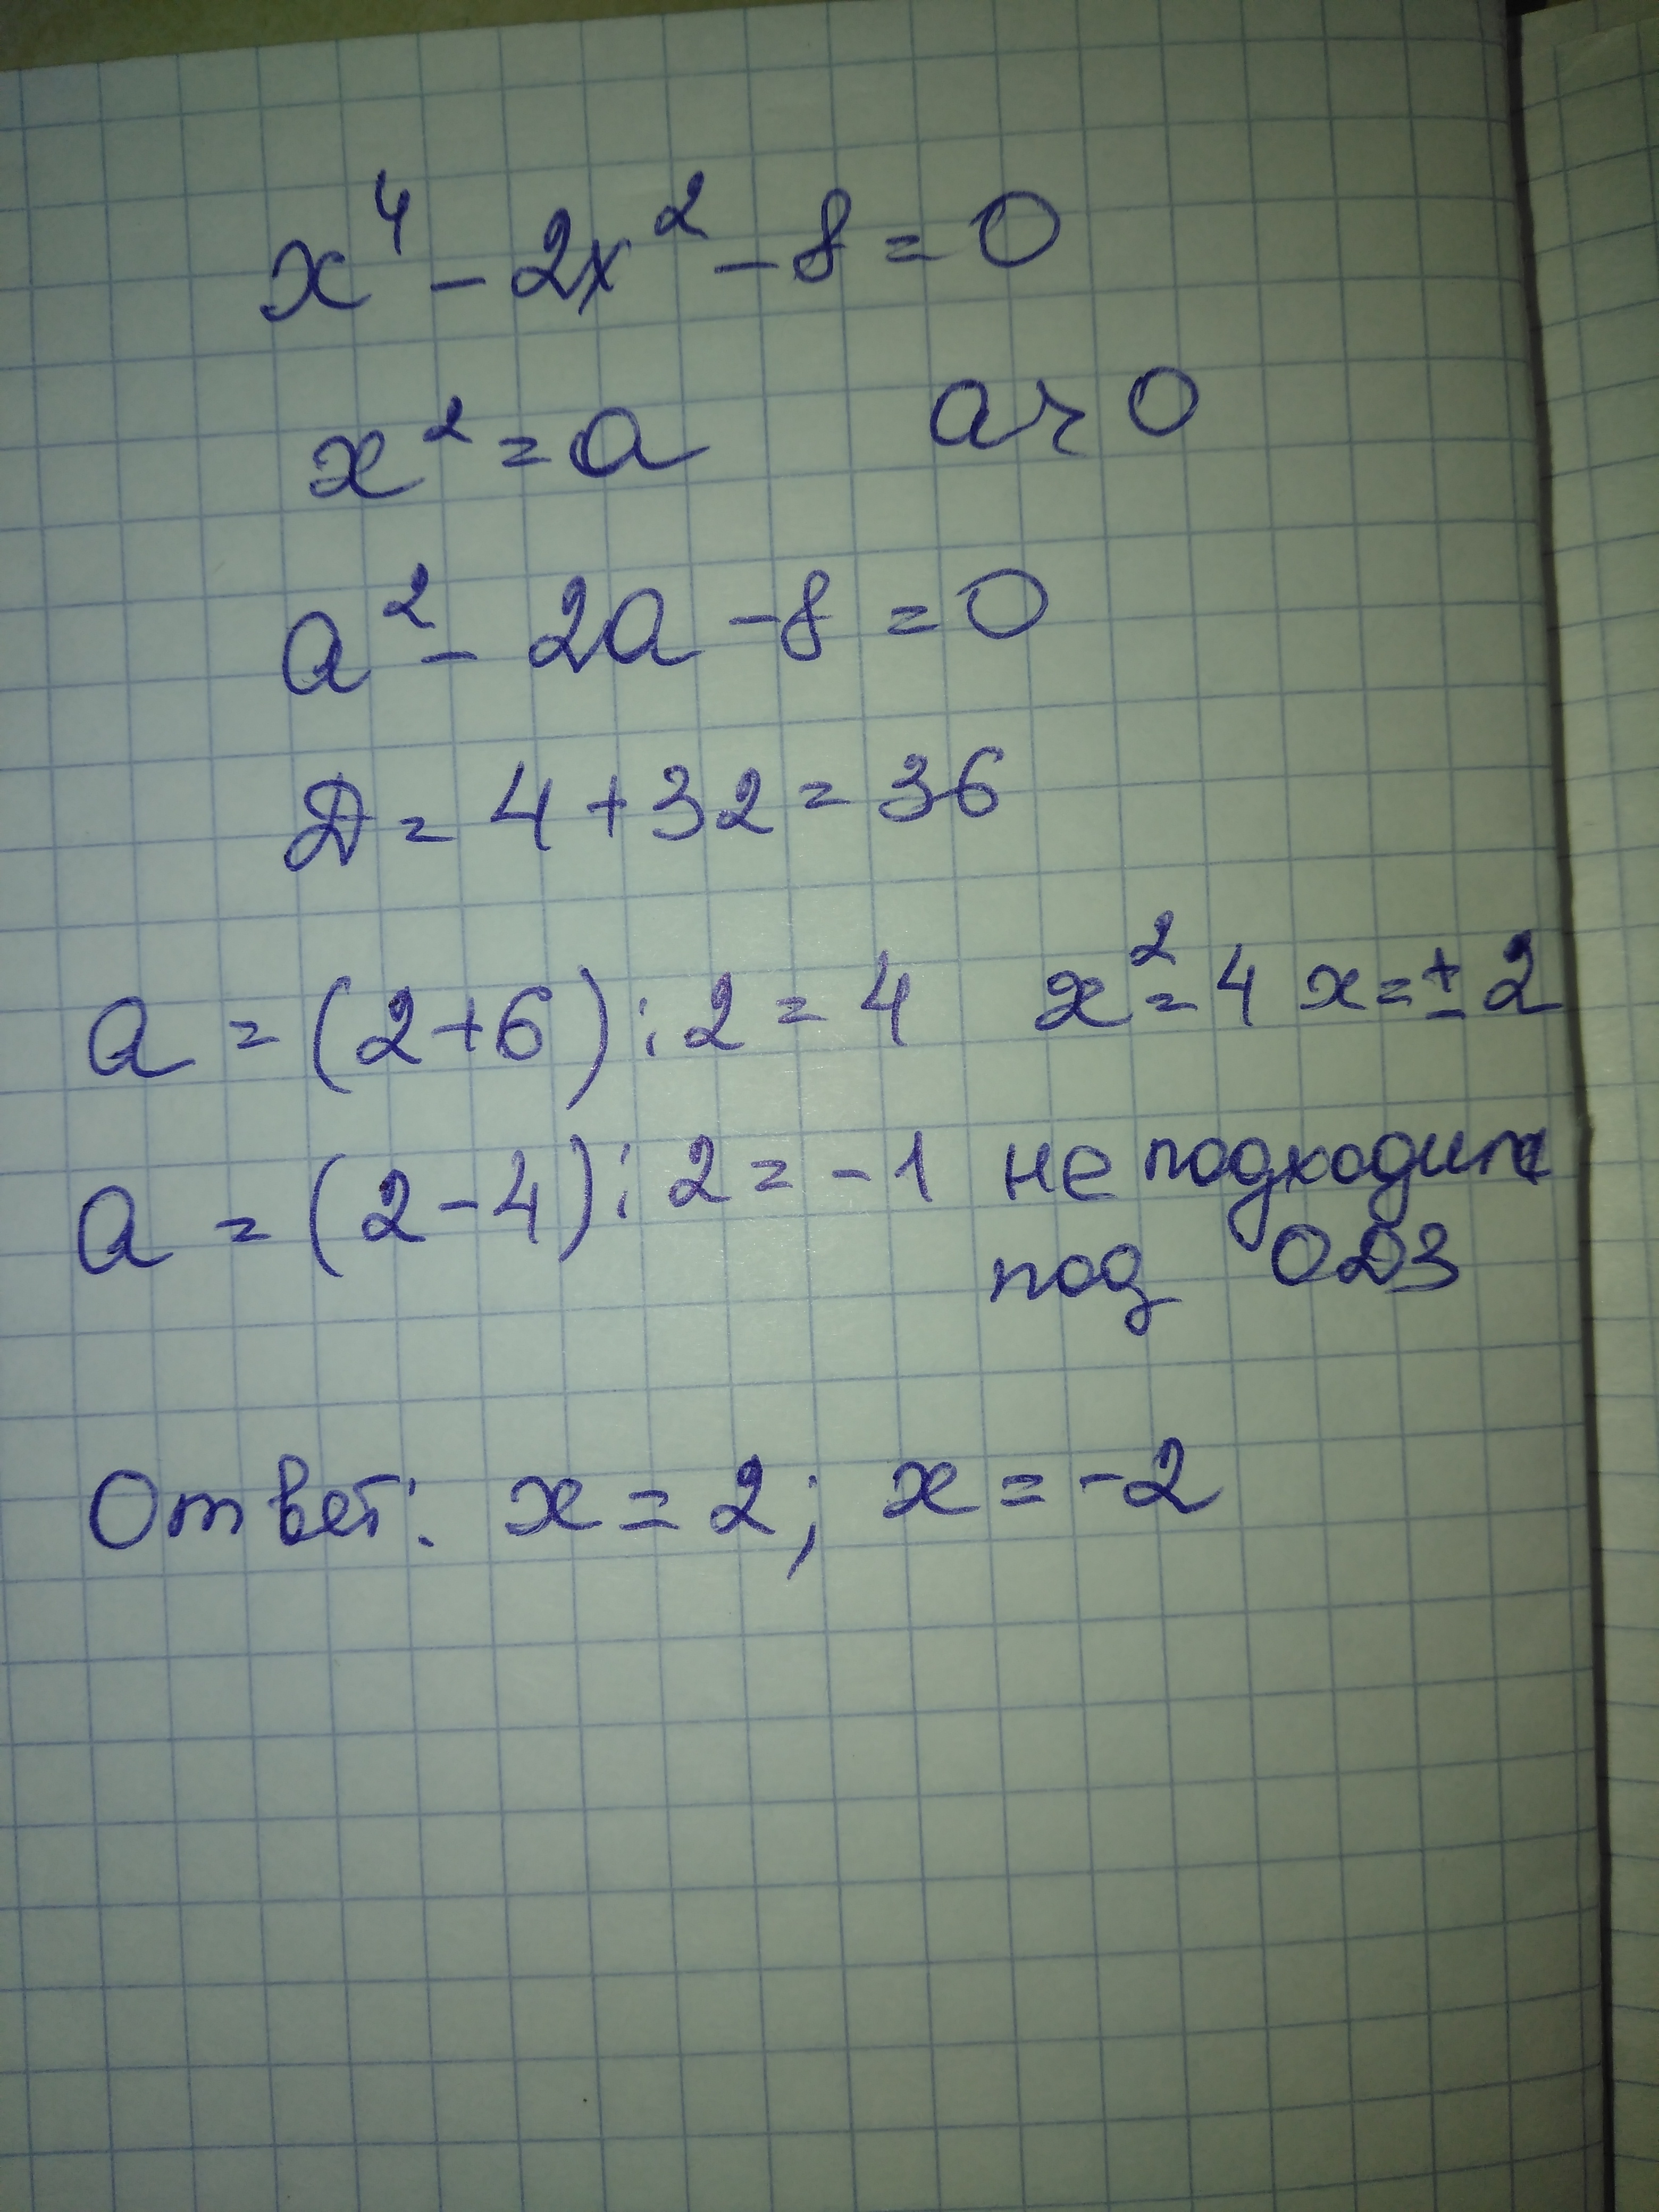 x⁴ - 2x² - 8 = 0
x² = a a > 0
a² - 2a - 8 = 0
Д = 4 + 32 = 36
a = (2+6) : 2 = 4 x² = 4 x = ± 2
a = (2-4) : 2 = -1 не подходит
под ОДЗ
Ответ: x = 2; x = -2